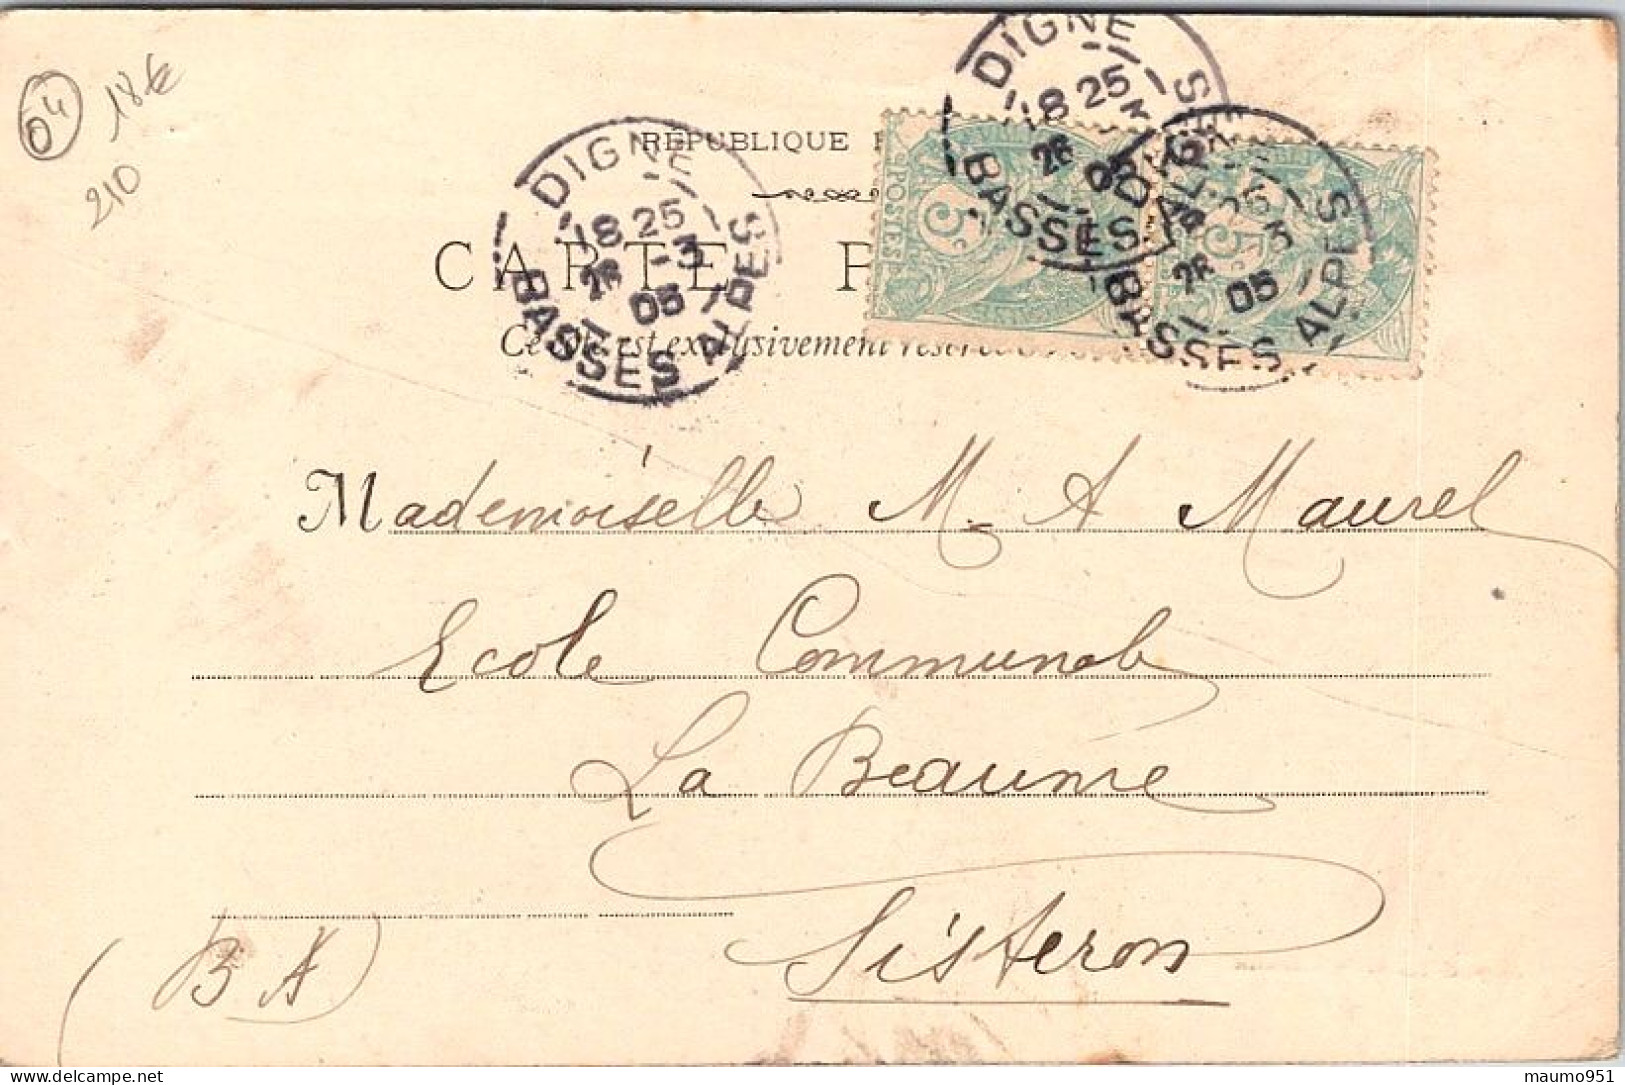 04
18 €
210
RÉPUBLIQUE
CARTE P
Ce côté est exclusivement réservé
DIGNE
18 25
26 -3
05
BASSES ALPES
DIGNE
18 25
26
05
BASSES ALPES
26 3
05
BASSES ALPES
POSTES
5c
5
Mademoiselle M. A Maurel
Ecole Communale
La Beaume
Sisteron
(B A)
maumo951